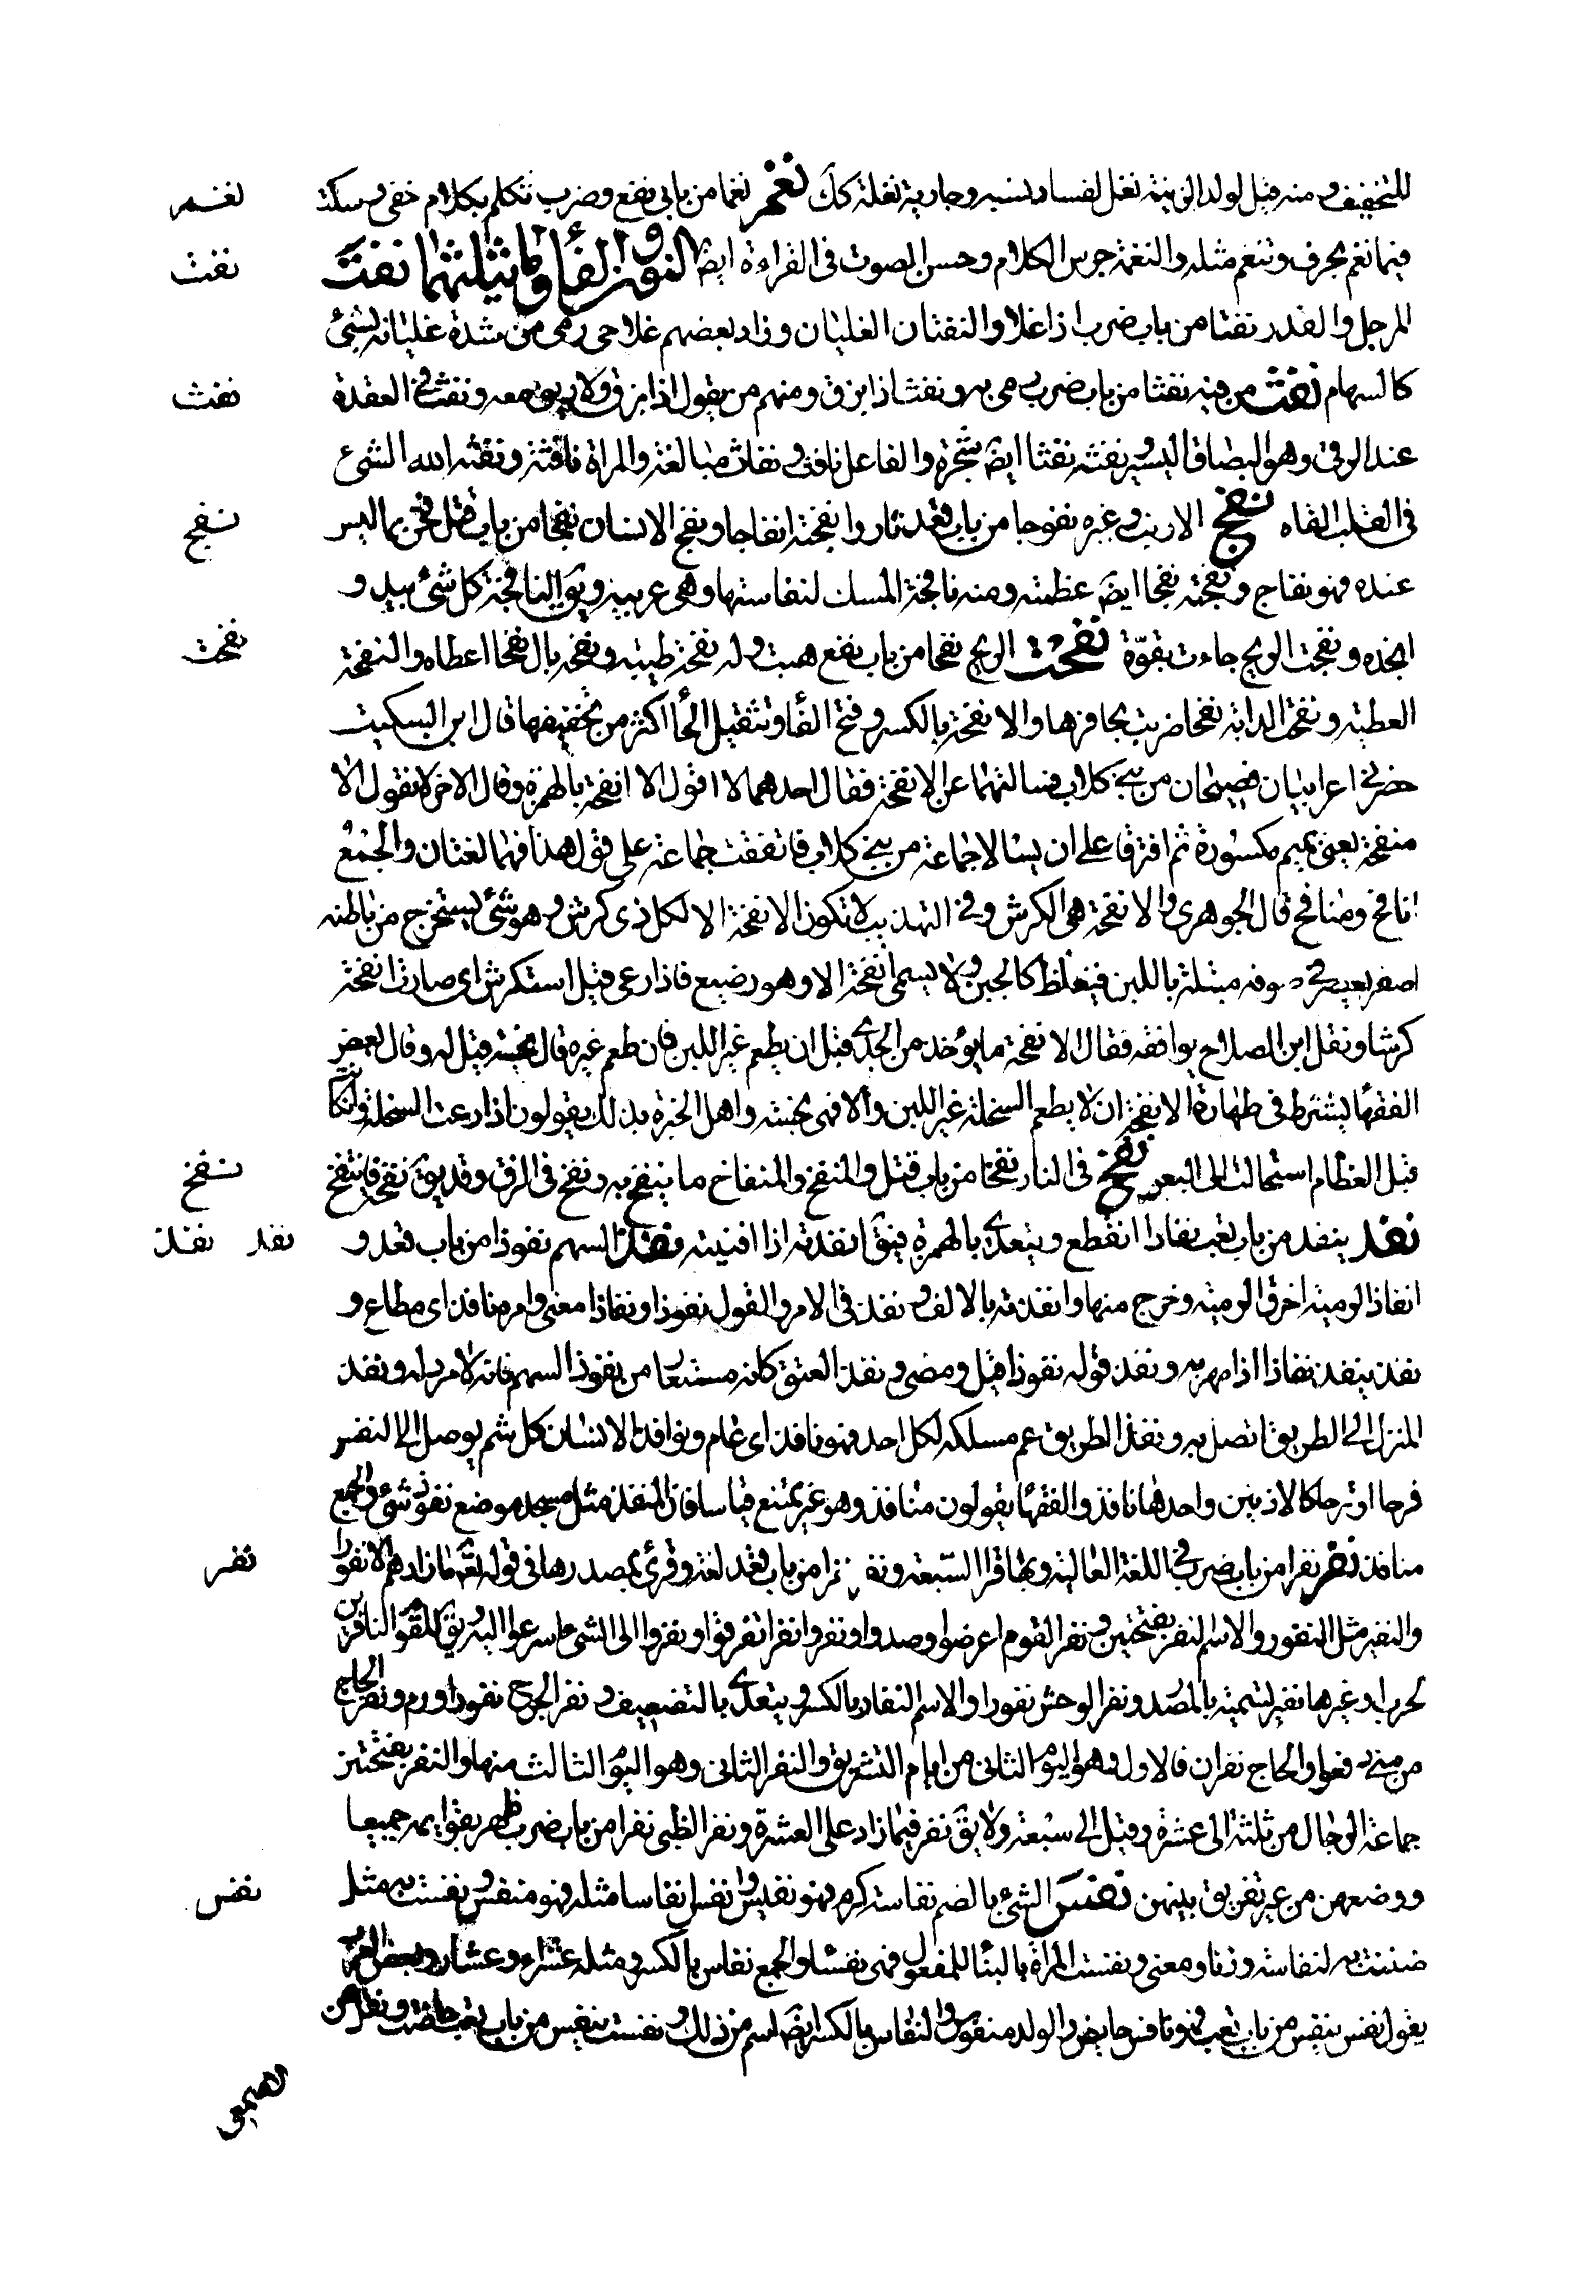 للتخفيف ومنه قيل لولد الزنية نغل لفساد نسبه وجارية نغلة كك نغم نغما من بابي نفع وضرب تكلم بكلام خفي وسكت
نغم
فما نغم بحرف وتنغم مثله والنغمة جرس الكلام وحسن الصوت في القراءة ايض النون والفا وما يثلثهما نفت
نفت
المرجل والقدر نفتا من باب ضرب اذا غلا والنفتان الغليان وزاد بعضهم غلا حتى رمى من شدة غليانه بشئ
كالسهام نفث من فيه نفثا من باب ضرب رمى به ونفث اذا بزق ومنهم من يقول اذا بزق ولا ريق معه ونفث في العقدة
نفث
عند الرقى وهو البصاق اليسير ونفثه نفثا ايض سحره والفاعل نافث ونفاث مبالغة والمراة نافثة ونفثه الله الشئ
في القلب القاه نفج الارنب وغيره نفوجا من باب قعد ثار وانفجته انفاجا ونفج الانسان نفجا من باب قتل فخر بما ليس
نفج
عنده فهو نفاج ونفجته نفجا ايض عظمته ومنه نافجة المسك لنفاستها وهي عربية ويق النافجة كل شئ يبدو
بحده ونفجت الريح جاءت بقوة نفحت الريح نفحا من باب نفع هبت وله نفحة طيبة ونفحه بالمال نفحا اعطاه والنفحة
نفحت
العطية ونفحت الدابة نفحا ضربت بحافرها والانفحة بالكسر وفتح الفا وتثقيل الحا اكثر من تخفيفها قال ابن السكيت
حضرني اعرابيان فصيحان من بني كلاب فسالتهما عن الانفحة فقال احدهما لا اقول الا انفحة بالهمزة وقال الاخر لا نقول الا
منفحة يعني بميم مكسورة ثم افترقا على ان يسالا جماعة من بني كلاب فاتفقت جماعة على قول هذا فهما لغتان والجمع
انافح ومنافح قال الجوهري والانفحة هي الكرش وفي التهذيب لا تكون الانفحة الا لكل ذي كرش وهو شئ يستخرج من بطنه
اصفر يعصر في صوفة مبتلة باللبن فيغلظ كالجبن ولا يسمى انفحة الا وهو رضيع فاذا رعى قيل استكرش اي صارت انفحته
كرشا ونقل ابن الصلاح يوافقه فقال الانفحة ما يؤخذ من الجدي قبل ان يطعم غير اللبن فان طعم غيره قال مجبنة قيل له وقال بعض
الفقها يشترط في طهارة الانفحة ان لا يطعم السخلة غير اللبن والا فهي نجسة واهل الخبرة بذلك يقولون اذا رعت السخلة وان كان
قبل الفطام استحالت الى البعر نفخ في النار نفخا من باب قتل والمنفخ والمنفاخ ما ينفخ به ونفخ في الزق وقد يق نفخه فانتفخ
نفخ
نفد ينفد من باب تعب نفادا انقطع ويتعدى بالهمزة فيق انفدته اذا افنيته نفذ السهم نفوذا من باب قعد و
نفد نفذ
انفاذ الرمية اخرق الرمية وخرج منها وانفذته بالالف ونفذ في الامر والقول نفوذا ونفاذا معنى وامره نافذ اي مطاع و
نفذ ينفذ نفاذا اذا مهر به ونفذ قوله نفوذا قبل ومضى ونفذ العتق كانه مستعار من نفوذ السهم فانه لا مرد له ونفذ
المنزل الى الطريق اتصل به ونفذ الطريق عم مسلكه لكل احد فهو نافذ اي عام ونوافذ الانسان كل شم يوصل الى النفس
فرحا او ترحا كالاذنين واحدها نافذ والفقها يقولون منافذ وهو غير ممتنع قياسا فان المنفذ مثل مسجد موضع نفوذ شئ والجمع
منافذ نفر نفرا من باب ضرب في اللغة العالية وبها قرا السبعة ونفر نفرا من باب قعد لغة وقرئ بمصدرها في قوله تع ما زادهم الا نفورا
نفر
والنفير مثل النفور والاسم النفر بفتحتين ونفر القوم اعرضوا وصدوا ونفروا نفرا تفرقوا ونفروا الى الشئ اسرعوا اليه ويق للقوم النافرين
لحرب او غيرها نفير تسمية بالمصدر ونفر الوحش نفورا والاسم النفار بالكسر ويتعدى بالتضعيف ونفر الجرح نفورا ورم ونفر الحاج
من منى دفعوا وللحاج نفران فالاول هو اليوم الثاني من ايام التشريق والنفر الثاني وهو اليوم الثالث منها والنفر بفتحتين
جماعة الرجال من ثلثة الى عشرة وقيل الى سبعة ولا يق نفر فيما زاد على العشرة ونفر الظبي نفرا من باب ضرب ظهر بقوايمه جميعا
ووضعهن من غير تفريق بينهن نفس الشئ بالضم نفاسة كرم فهو نفيس وانفس انفاسا مثله فهو منفس ونفست به مثل
نفس
ضننت به لنفاسته وزنا ومعنى ونفست المراة بالبنا للمفعول فهي نفسا والجمع نفاس بالكسر ومثله عشراء وعشار وبعض العرب
يقول نفس ينفس من باب تعب فهو نافس حايض والولد منفوس والنفاس بالكسر ايض اسم من ذلك ونفست تنفس من باب تعب حاضت ونقل عن
الاصمعي